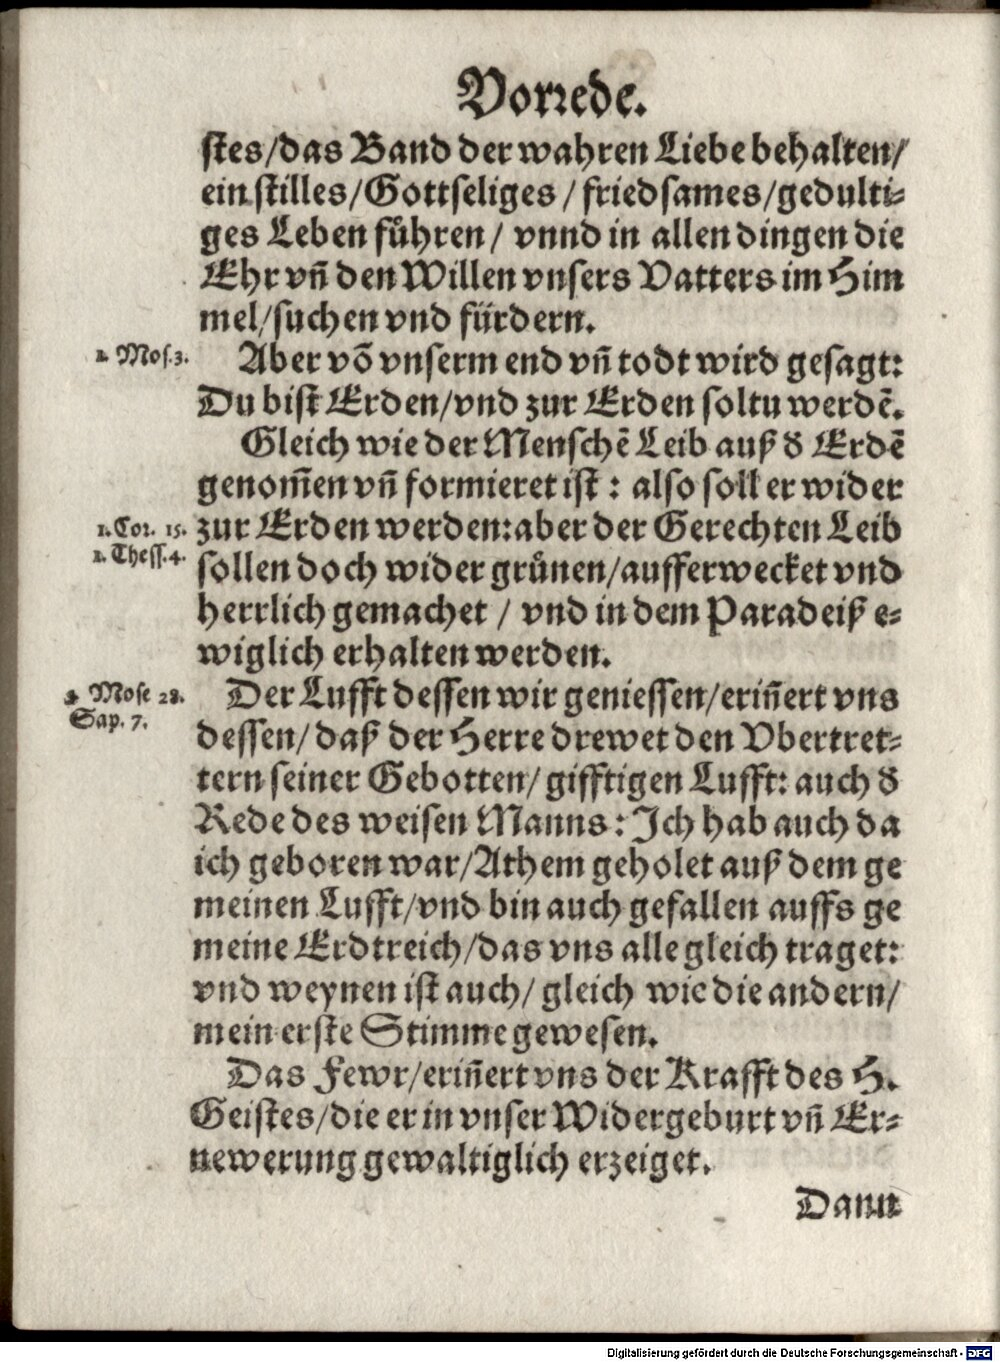 Vorrede.
stes/das Band der wahren Liebe behalten/
ein stilles/Gottseliges/friedsames/gedulti-
ges Leben fuͤhren/ vnnd in allen dingen die
Ehr vñ den Willen vnsers Vatters im Him
mel/suchen vnd fürdern.
1. Mos.3.
Aber võ vnserm end vñ todt wird gesagt:
Du bist Erden/vnd zur Erden soltu werdē.
Gleich wie der Menschē Leib auß d̕ Erdē
genom̃en vñ formieret ist : also soll er wider
1.Cor. 15.
zur Erden werden: aber der Gerechten Leib
1.Thess.4.
sollen doch wider gruͤnen/aufferwecket vnd
herrlich gemachet / vnd in dem Paradeiß e-
wiglich erhalten werden.
Mose 28.
Der Lufft dessen wir geniessen/eriñert vns
Sap. 7.
dessen/ daß der Herre drewet den Vbertret-
tern seiner Gebotten/ gifftigen Lufft: auch d̕
Rede des weisen Manns: Ich hab auch da
ich geboren war/Athem geholet auß dem ge
meinen Lufft/vnd bin auch gefallen auffs ge
meine Erdtreich/das vns alle gleich traget:
vnd weynen ist auch/ gleich wie die andern/
mein erste Stimme gewesen.
Das Fewr/eriñert vns der Krafft des H.
Geistes/die er in vnser Widergeburt vñ Er-
newerung gewaltiglich erzeiget.
Dann
Digitalisierung gefördert durch die Deutsche Forschungsgemeinschaft - DFG